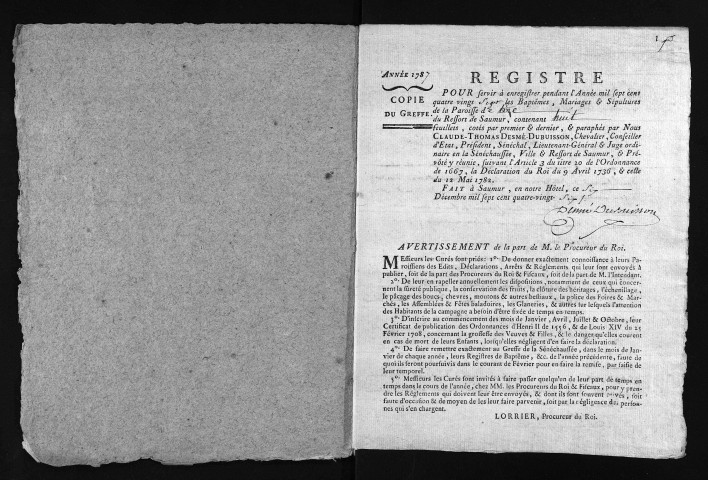 1
ANNÉE 1787
COPIE
DU GREFFE.
REGISTRE
POUR servir à enregistrer pendant l'Année mil sept cent
quatre vingt Sept les Baptêmes, Mariages & Sépultures
de la Paroisse d
du Ressort de Saumur, contenant huit
feuillets, cotés par premier & dernier, & paraphés par Nous
CLAUDE-THOMAS DESMÉ-DUBUISSON, Chevalier, Conseiller
d'Etat, Président, Sénéchal, Lieutenant-Général & Juge ordi-
naire en la Sénéchaussée, Ville & Ressort de Saumur, & Pré-
vôté y réunie, suivant l'Article 3 du titre 20 de l'Ordonnance
de 1667, la Déclaration du Roi du 9 Avril 1736, & celle
du 12 Mai 1782.
FAIT à Saumur, en notre Hôtel, ce Six
Décembre mil sept cent quatre-vingt- Six
Desmé Dubuisson
AVERTISSEMENT de la part de M. le Procureur du Roi.
Messieurs les Curés sont priés: 1º. De donner exactement connoissance à leurs Pa-
roissiens des Edits, Déclarations, Arrêts & Réglements qui leur sont envoyés à
publier, soit de la part des Procureurs du Roi & Fiscaux, soit de la part de M. l'Intendant.
2º. De leur en rapeller annuellement les dispositions, notamment de ceux qui concer-
nent la sûreté publique, la conservation des fruits, la clôture des héritages, l'échenillage,
le pâcage des boucs, chevres, moutons & autres bestiaux, la police des Foires & Mar-
chés, les Assemblées & Fêtes baladoires, les Glaneurs, & autres sur lesquels l'attention
des Habitants de la campagne a besoin d'être fixée de temps en temps.
3º. D'inscrire au commencement des mois de Janvier, Avril, Juillet & Octobre, leur
Certificat de publication des Ordonnances d'Henri II de 1556, & de Louis XIV du 25
Février 1708, concernant la grossesse des Veuves & Filles, & le danger qu'elles courent
en cas de mort de leurs Enfants, lorsqu'elles négligent d'en faire la déclaration.
4º. De faire remettre exactement au Greffe de la Sénéchaussée, dans le mois de Jan-
vier de chaque année, leurs Registres de Baptême, &c. de l'année précédente, faute de
quoi ils seront poursuivis dans le courant de Février pour en faire la remise, par saisie de
leur temporel.
5º. Messieurs les Curés sont invités à faire passer quelqu'un de leur part de temps en
temps dans le cours de l'année, chez MM. les Procureurs du Roi & Fiscaux, pour y pren-
dre les Réglements qui doivent leur être envoyés, & dont ils sont souvent privés, soit
faute d'occasion & de moyen de les leur faire parvenir, soit par la négligence des person-
nes qui s'en chargent.
LORRIER, Procureur du Roi.